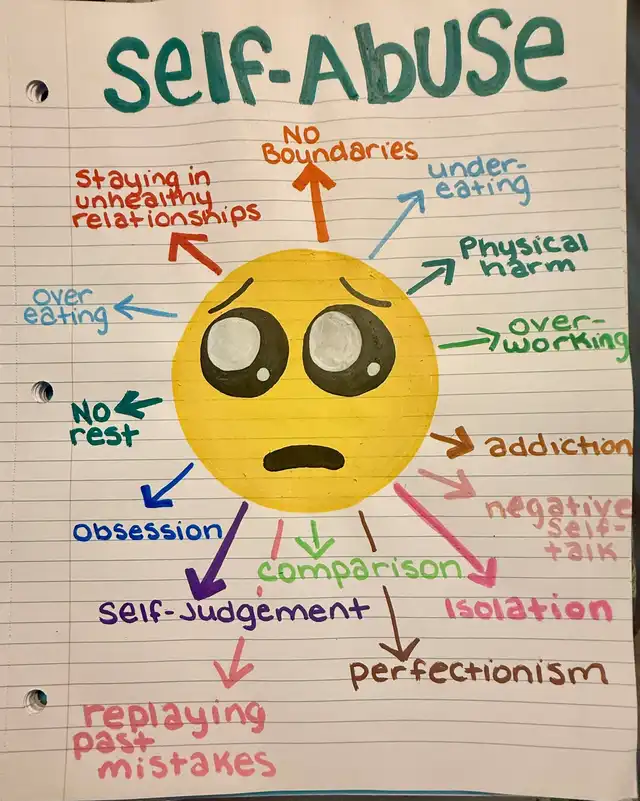 Self-Abuse
No
Boundaries
Staying in
unhealthy
relationships
under-
eating
Physical
harm
over
eating
over-
working
No
rest
addiction
obsession
negative
self-
talk
comparison
Self-Judgement
Isolation
perfectionism
replaying
past
mistakes